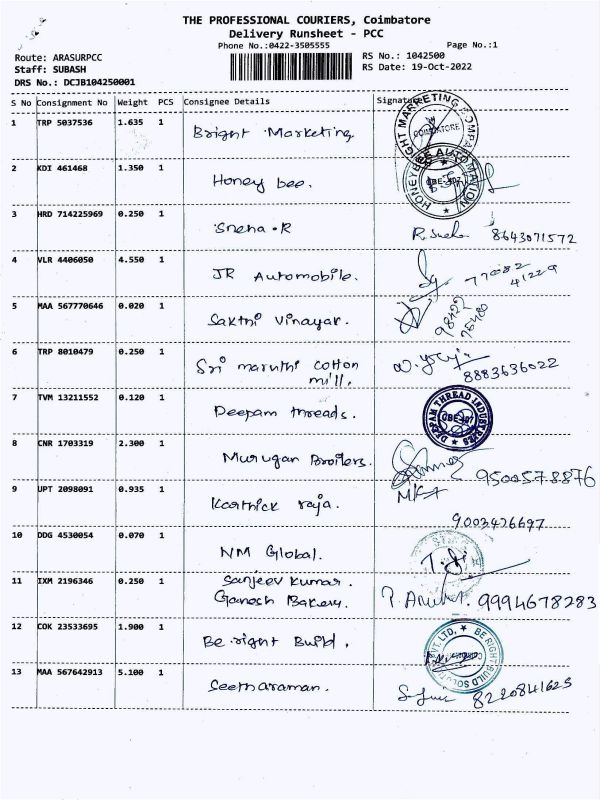 THE PROFESSIONAL COURIERS, Coimbatore
Delivery Runsheet - PCC
Phone No.:0422-3505555 Page No.:1
Route: ARASURPCC RS No.: 1042500
Staff: SUBASH RS Date: 19-Oct-2022
DRS No.: DCJB104250001
S No Consignment No Weight PCS Consignee Details Signature
1 TRP 5037536 1.635 1 Bright Marketing
BRIGHT MARKETING COMPANY COIMBATORE
2 KDI 461468 1.350 1 Honey bee.
HONEYBEE AUTOMATION CBE-407
3 HRD 714225969 0.250 1 Sneha.R R. Sneha 8643071572
4 VLR 4406050 4.550 1 JR Automobile. 77082
41229
5 MAA 567770646 0.020 1 Sakthi Vinayar. 98422
76480
6 TRP 8010479 0.250 1 Sri maruthi cotton
mill. 8883636022
7 TVM 13211552 0.120 1 Deepam threads.
DEEPAM THREAD INDUSTRIES CBE-407
8 CNR 1703319 2.300 1 Murugan Broilers. 9500578876
9 UPT 2098091 0.935 1 Karthick raja. 9003426697
10 DDG 4530054 0.070 1 NM Global.
11 IXM 2196346 0.250 1 Sanjeev Kumar.
Ganesh Bakery. 9994678283
12 COK 23533695 1.900 1 Be right Build.
BE RIGHT BUILD SOLUTIONS PVT. LTD.
13 MAA 567642913 5.100 1 Seetharaman. 8220841625